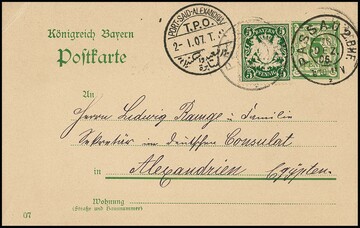 Königreich Bayern
Postkarte
PORT-SAID-ALEXANDRIA
T.P.O.
2- 1.07. T.
BAYERN
5 5
PFENNIG
PASSAU 2. BHF.
An
Herrn Ludwig Range u. Familie
Sekretär im deutschen Consulat
in Alexandrien Egypten.
Wohnung
(Straße und Hausnummer)
07